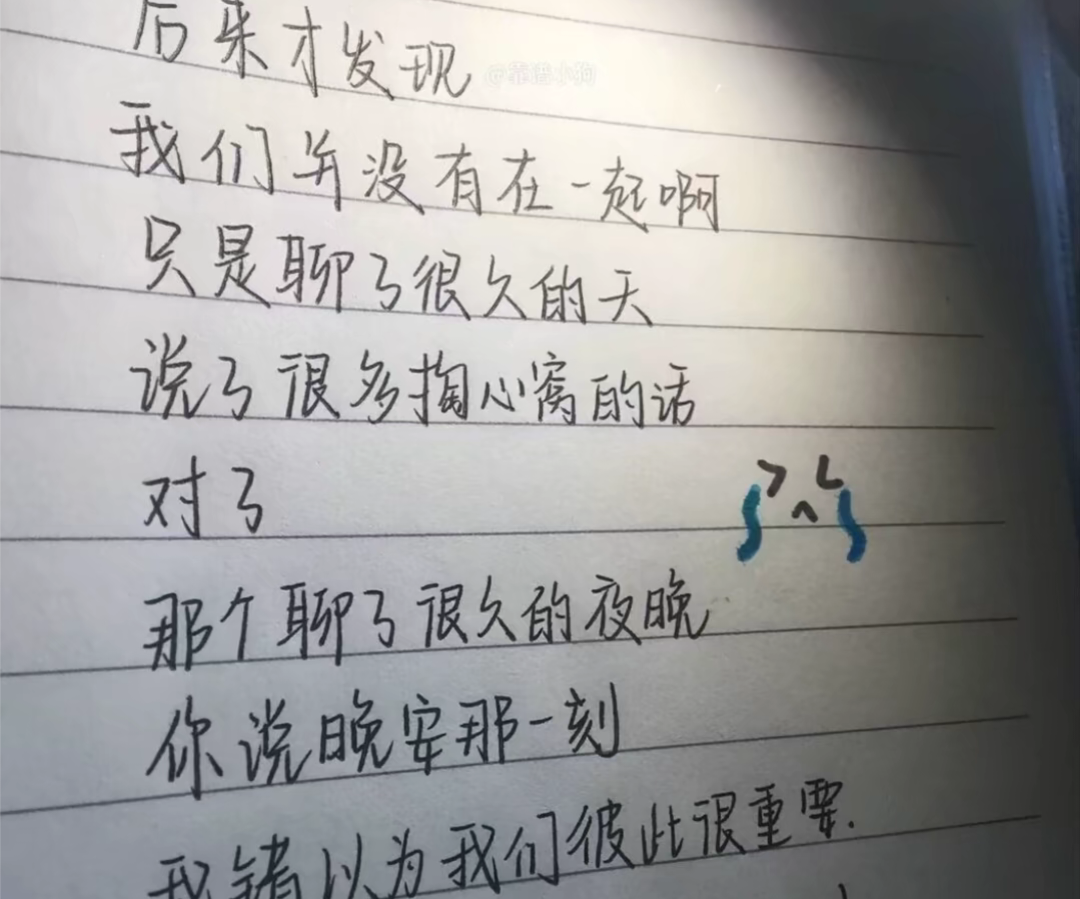 后来才发现
我们并没有在一起啊
只是聊了很久的天
说了很多掏心窝的话
对了
那个聊了很久的夜晚
你说晚安那一刻
我错以为我们彼此很重要.